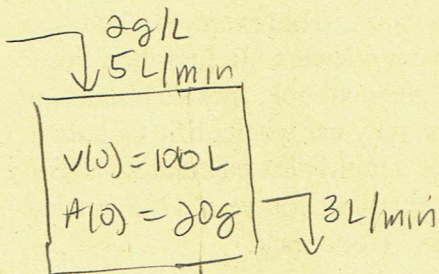 2g/L
5 L/min
V(0) = 100L
A(0) = 20g
3L/min